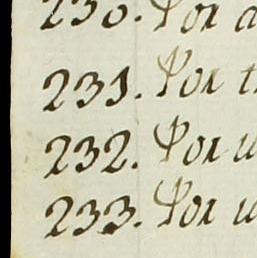 230. Por
231. Por
232. Por
233. Por